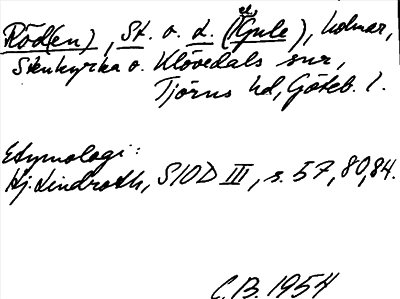 Röd(en), St. o. L. (Kule), holmar,
Stenkyrka o. Klövedals snr,
Tjörns hd, Göteb. l.
Etymologi:
Hj. Lindroth, SIOD III, s. 57, 80, 84.
C.B. 1954